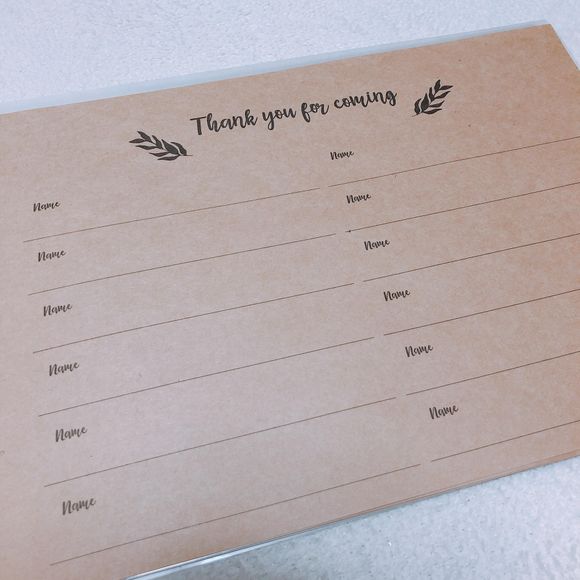 Thank you for coming
Name
Name
Name
Name
Name
Name
Name
Name
Name
Name
Name
Name